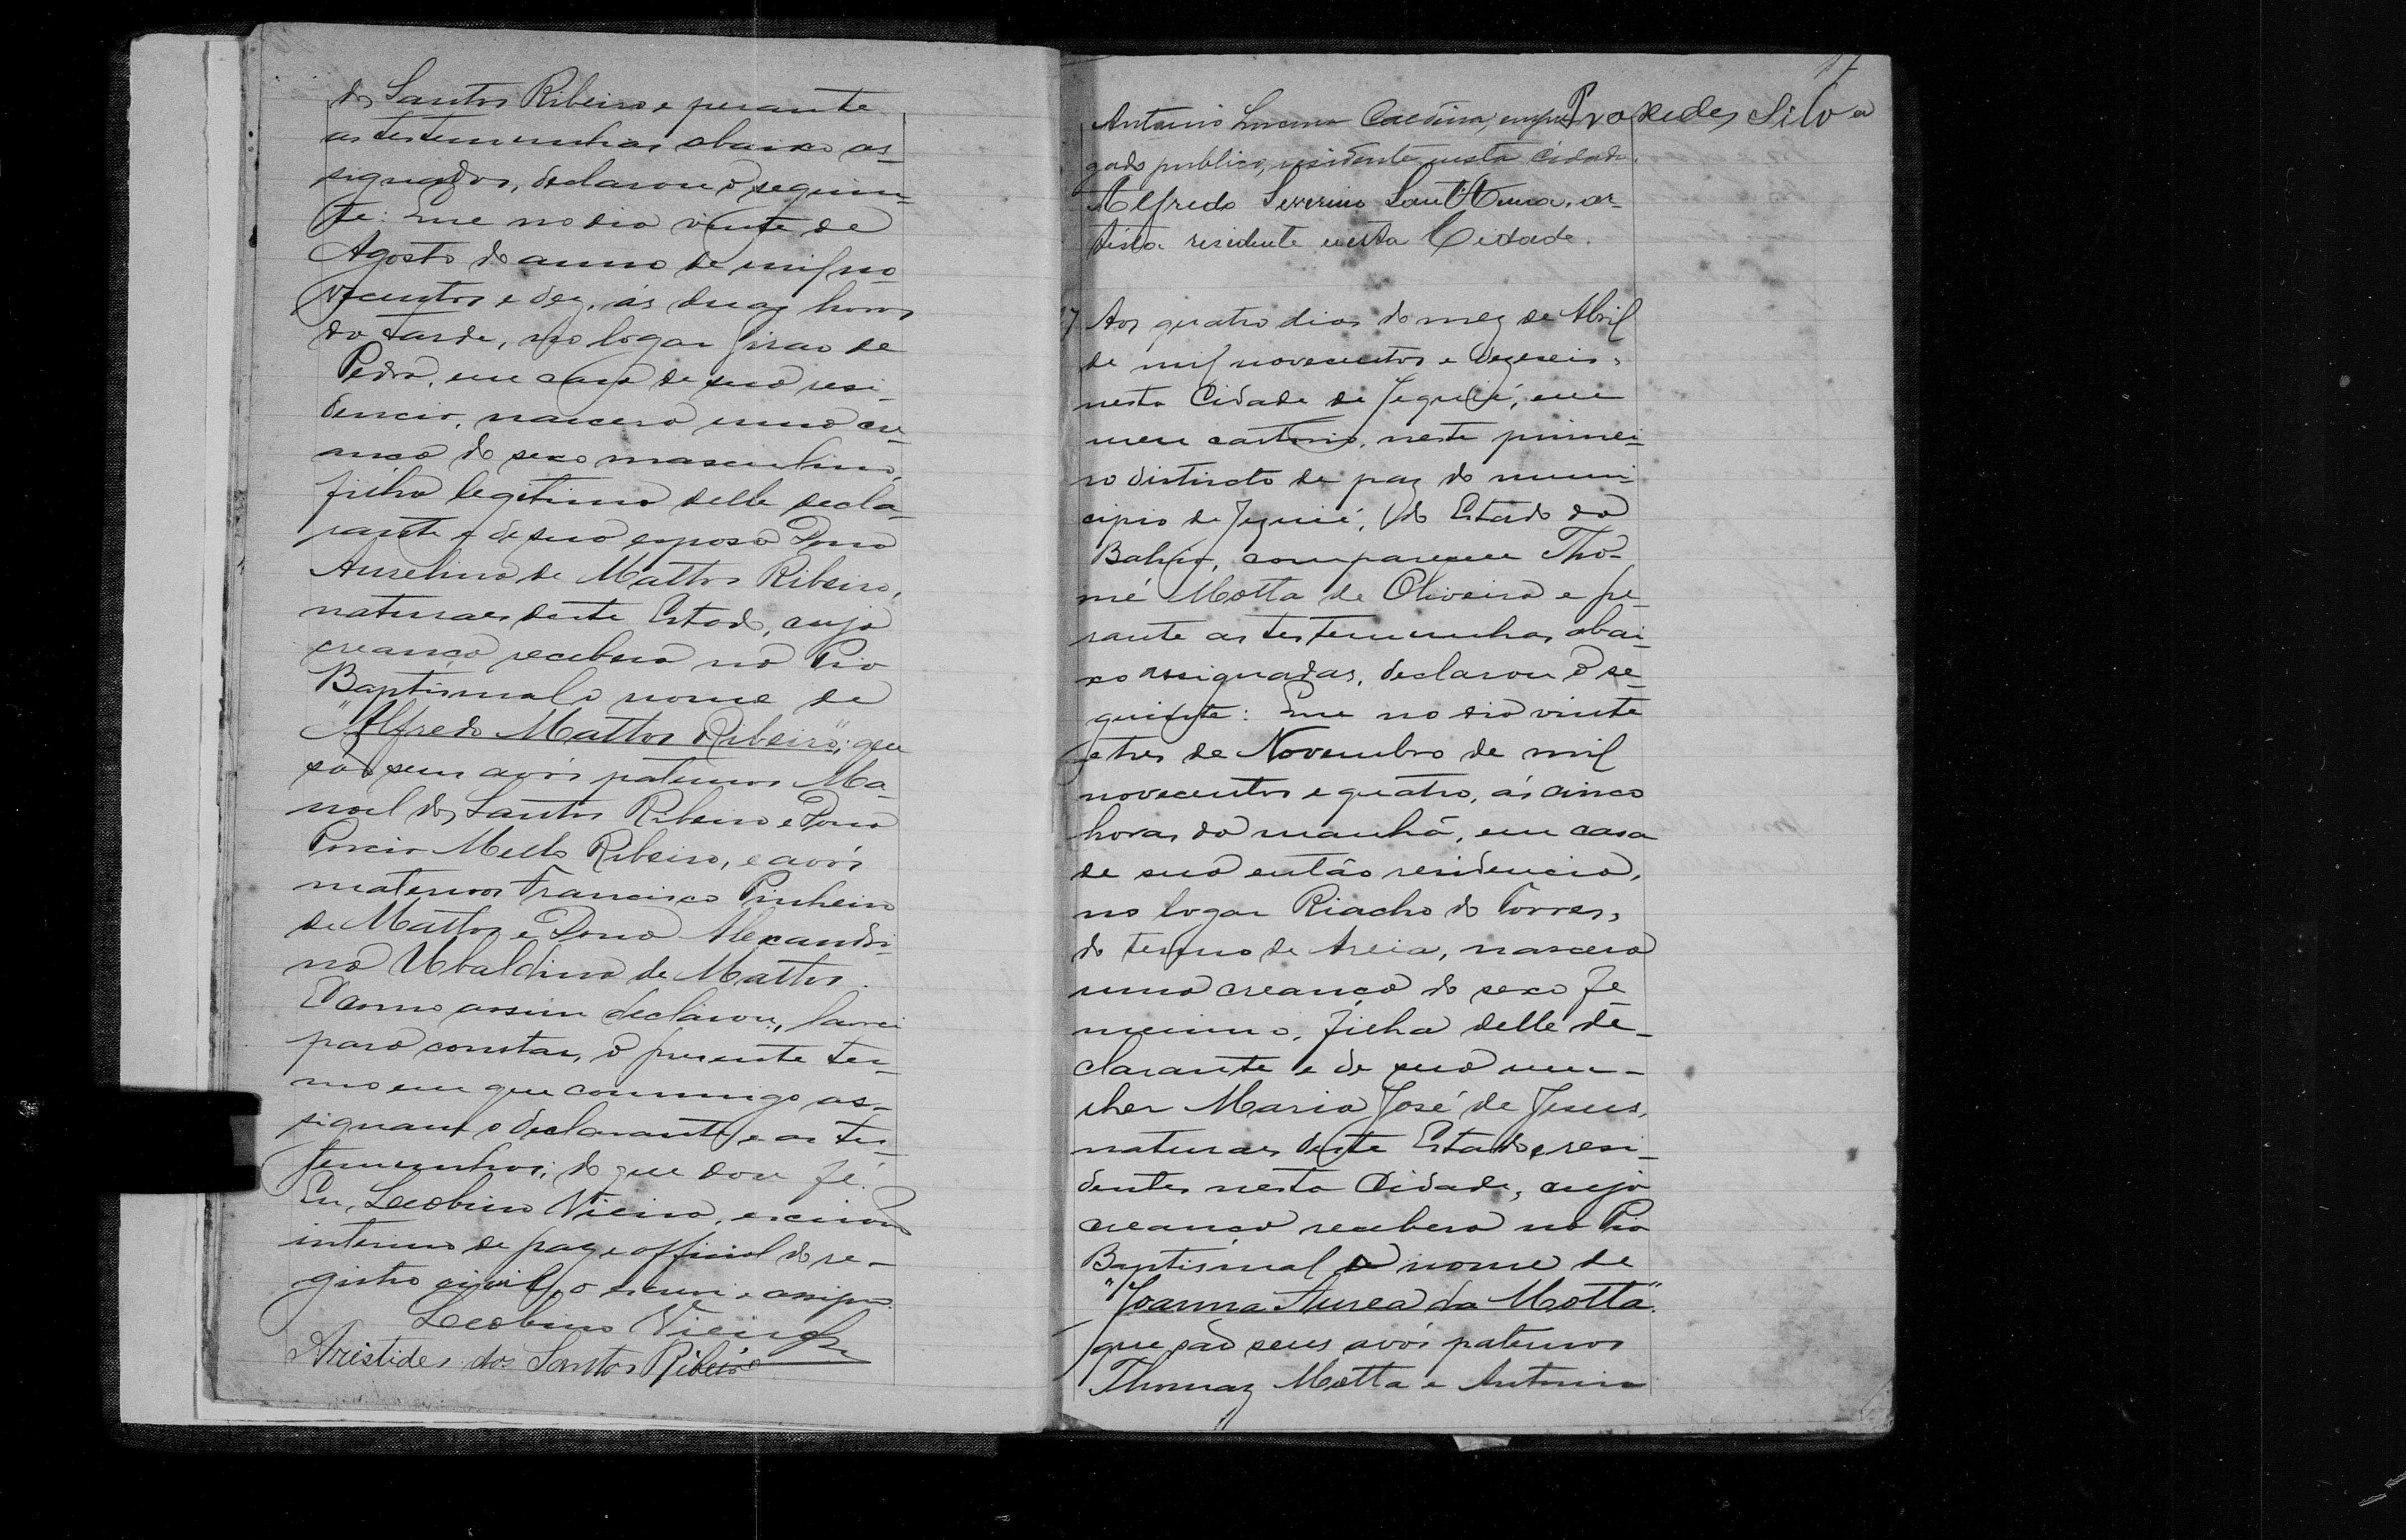 dos Santos Ribeiro e perante
as testemunhas abaixo as-
signados, declarou o seguin-
te: Que no dia vinte de
Agosto do anno de mil no-
vecentos e dez, ás duas horas
da tarde, no logar Girao de
Pedra, em casa de sua resi-
dencia, nascera uma cre-
ança do sexo masculino,
filho legitimo delle decla-
rante e de sua esposa Dona
Auselina de Mattos Ribeiro,
naturaes deste Estado, cuja
creança recebera na Pia
Baptismal o nome de
"Alfredo Mattos Ribeiro"; que
são seus avós paternos Ma-
noel dos Santos Ribeiro e Dona
Porcia Mello Ribeiro, e avós
maternos Francisco Pinheiro
de Mattos e Dona Alexandri-
na Ubaldina de Mattos.
E como assim declarou, lavrei
para constar, o presente ter-
mo em que commigo as-
signam o declarante e as tes-
temunhas; do que dou fé.
Eu, Leobino Vieira, escrivão
interino de paz e official do re-
gistro civil, o escrevi e assigno.
Leobino Vieira
Aristides dos Santos Ribeiro
17
Antonio Lucena
Praxedes Silva
gado publico, residente nesta cidade.
Alfredo Severino Sant'Anna, ar-
tista residente nesta Cidade.
7 Aos quatro dias do mez de Abril
de mil novecentos e dezeseis,
nesta Cidade de Jequié, em
meu cartorio, neste primei-
ro districto de paz do muni-
cipio de Jequié, do Estado da
Bahia, compareceu Tho-
mé Motta de Oliveira e pe-
rante as testemunhas abai-
xo assignadas, declarou o se-
guinte: Que no dia vinte
e tres de Novembro de mil
novecentos e quatro, ás cinco
horas da manhã, em casa
de sua então residencia,
no logar Riacho do Torres,
do termo de Areia, nascera
uma creança do sexo fe-
menino, filha delle de-
clarante e de sua mu-
lher Maria José de Jesus,
naturaes deste Estado e resi-
dentes nesta Cidade, cuja
creança recebera na Pia
Baptismal o nome de
"Joanna Aurea da Motta".
que são seus avós paternos
Thomaz Motta e Antonia